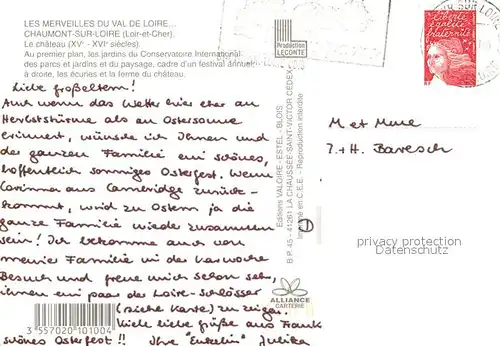 LES MERVEILLES DU VAL DE LOIRE...
CHAUMONT-SUR-LOIRE (Loir-et-Cher).
Le château (XVe - XVIe siècles).
Au premier plan, les jardins du Conservatoire International
des parcs et jardins et du paysage, cadre d'un festival annuel;
à droite, les écuries et la ferme du château.
Liebe Großeltern!
Auch wenn das Wetter hier eher an
Herbststürme als an Ostersonne
erinnert, wünsche ich Ihnen und
der ganzen Familie ein schönes,
hoffentlich sonniges Osterfest. Wenn
Corinna aus Cambridge zurück-
kommt, wird zu Ostern ja die
ganze Familie wieder zusammen
sein! Ich bekomme auch von
meiner Familie in der Karwoche
Besuch und freue mich schon sehr,
ihnen ein paar der Loire-Schlösser
(siehe Karte) zu zeigen.
Viele liebe Grüße aus Frank
schönes Osterfest!! Ihre "Enkelin" Julika
3 557020 101004
Production
LECONTE
Editions VALOIRE-ESTEL - BLOIS
B.P. 45 - 41261 LA CHAUSSEE-SAINT-VICTOR CEDEX
Imprimé en C.E.E. - Reproduction interdite
ALLIANCE
CARTERIE
liberté
égalité
fraternité
M et Mme
J.+H. Baresch
privacy protection
Datenschutz